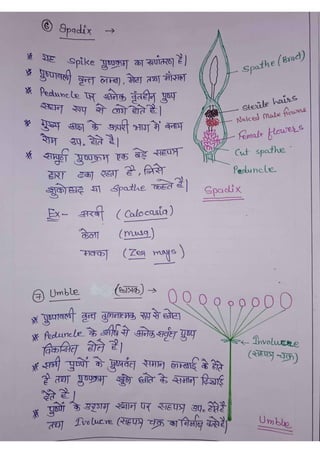 ⑥ Spadix →
* यह Spike पुष्पक्रम का रूपांतरण है।
* पुष्पावली वृन्त लम्बा, मोटा तथा मांसल
* Peduncle पर अनेक वृंतहीन पुष्प
सघन रूप से लगे होते हैं।
* मुख्य अक्ष के ऊपरी भाग में बन्ध्य
रोम उप. होते है।
* सम्पूर्ण पुष्पक्रम एक बड़े सहपत्र
द्वारा ढका रहता है, जिसे
या Spathe कहते हैं।
Ex- अरबी (Calocasia)
केला (Musa)
मक्का (Zea mays)
Spathe (Bract)
Sterile hairs
Naked Male flowers
Female flowers
Cut spathe
Peduncle
Spadix
⑦ Umble (छत्रक) →
* पुष्पावली वृन्त तुलनात्मक रूप से छोटा
* Peduncle के शीर्ष से अनेक सवृन्त पुष्प
विकसित होते है।
* सभी पुष्पों के पुष्पवृंत समान लम्बाई के होते
है तथा पुष्पक्रम खुले छाते के समान दिखाई
देते हैं।
* पुष्पों के उद्गम स्थान पर सहपत्र उप. होते हैं
तथा Ivolucre (सहपत्र चक्र का निर्माण करते हैं)
Involucre
(सहपत्र चक्र)
Umble